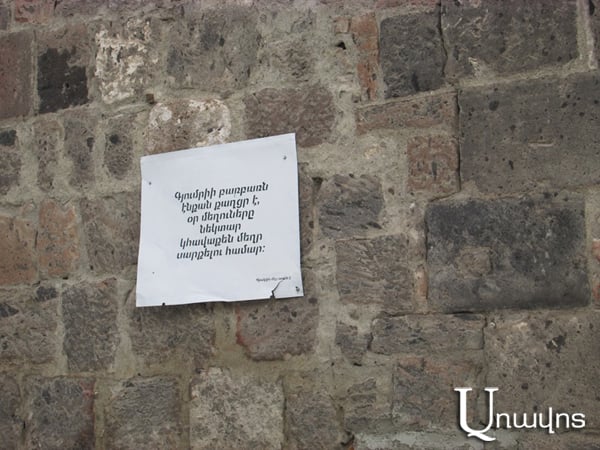 Գյումրիի բառբառն
էնքան քաղցր է,
օր մեղուները
նեկտար
կհավաքեն մեղր
սարքելու համար:
Առավոտ